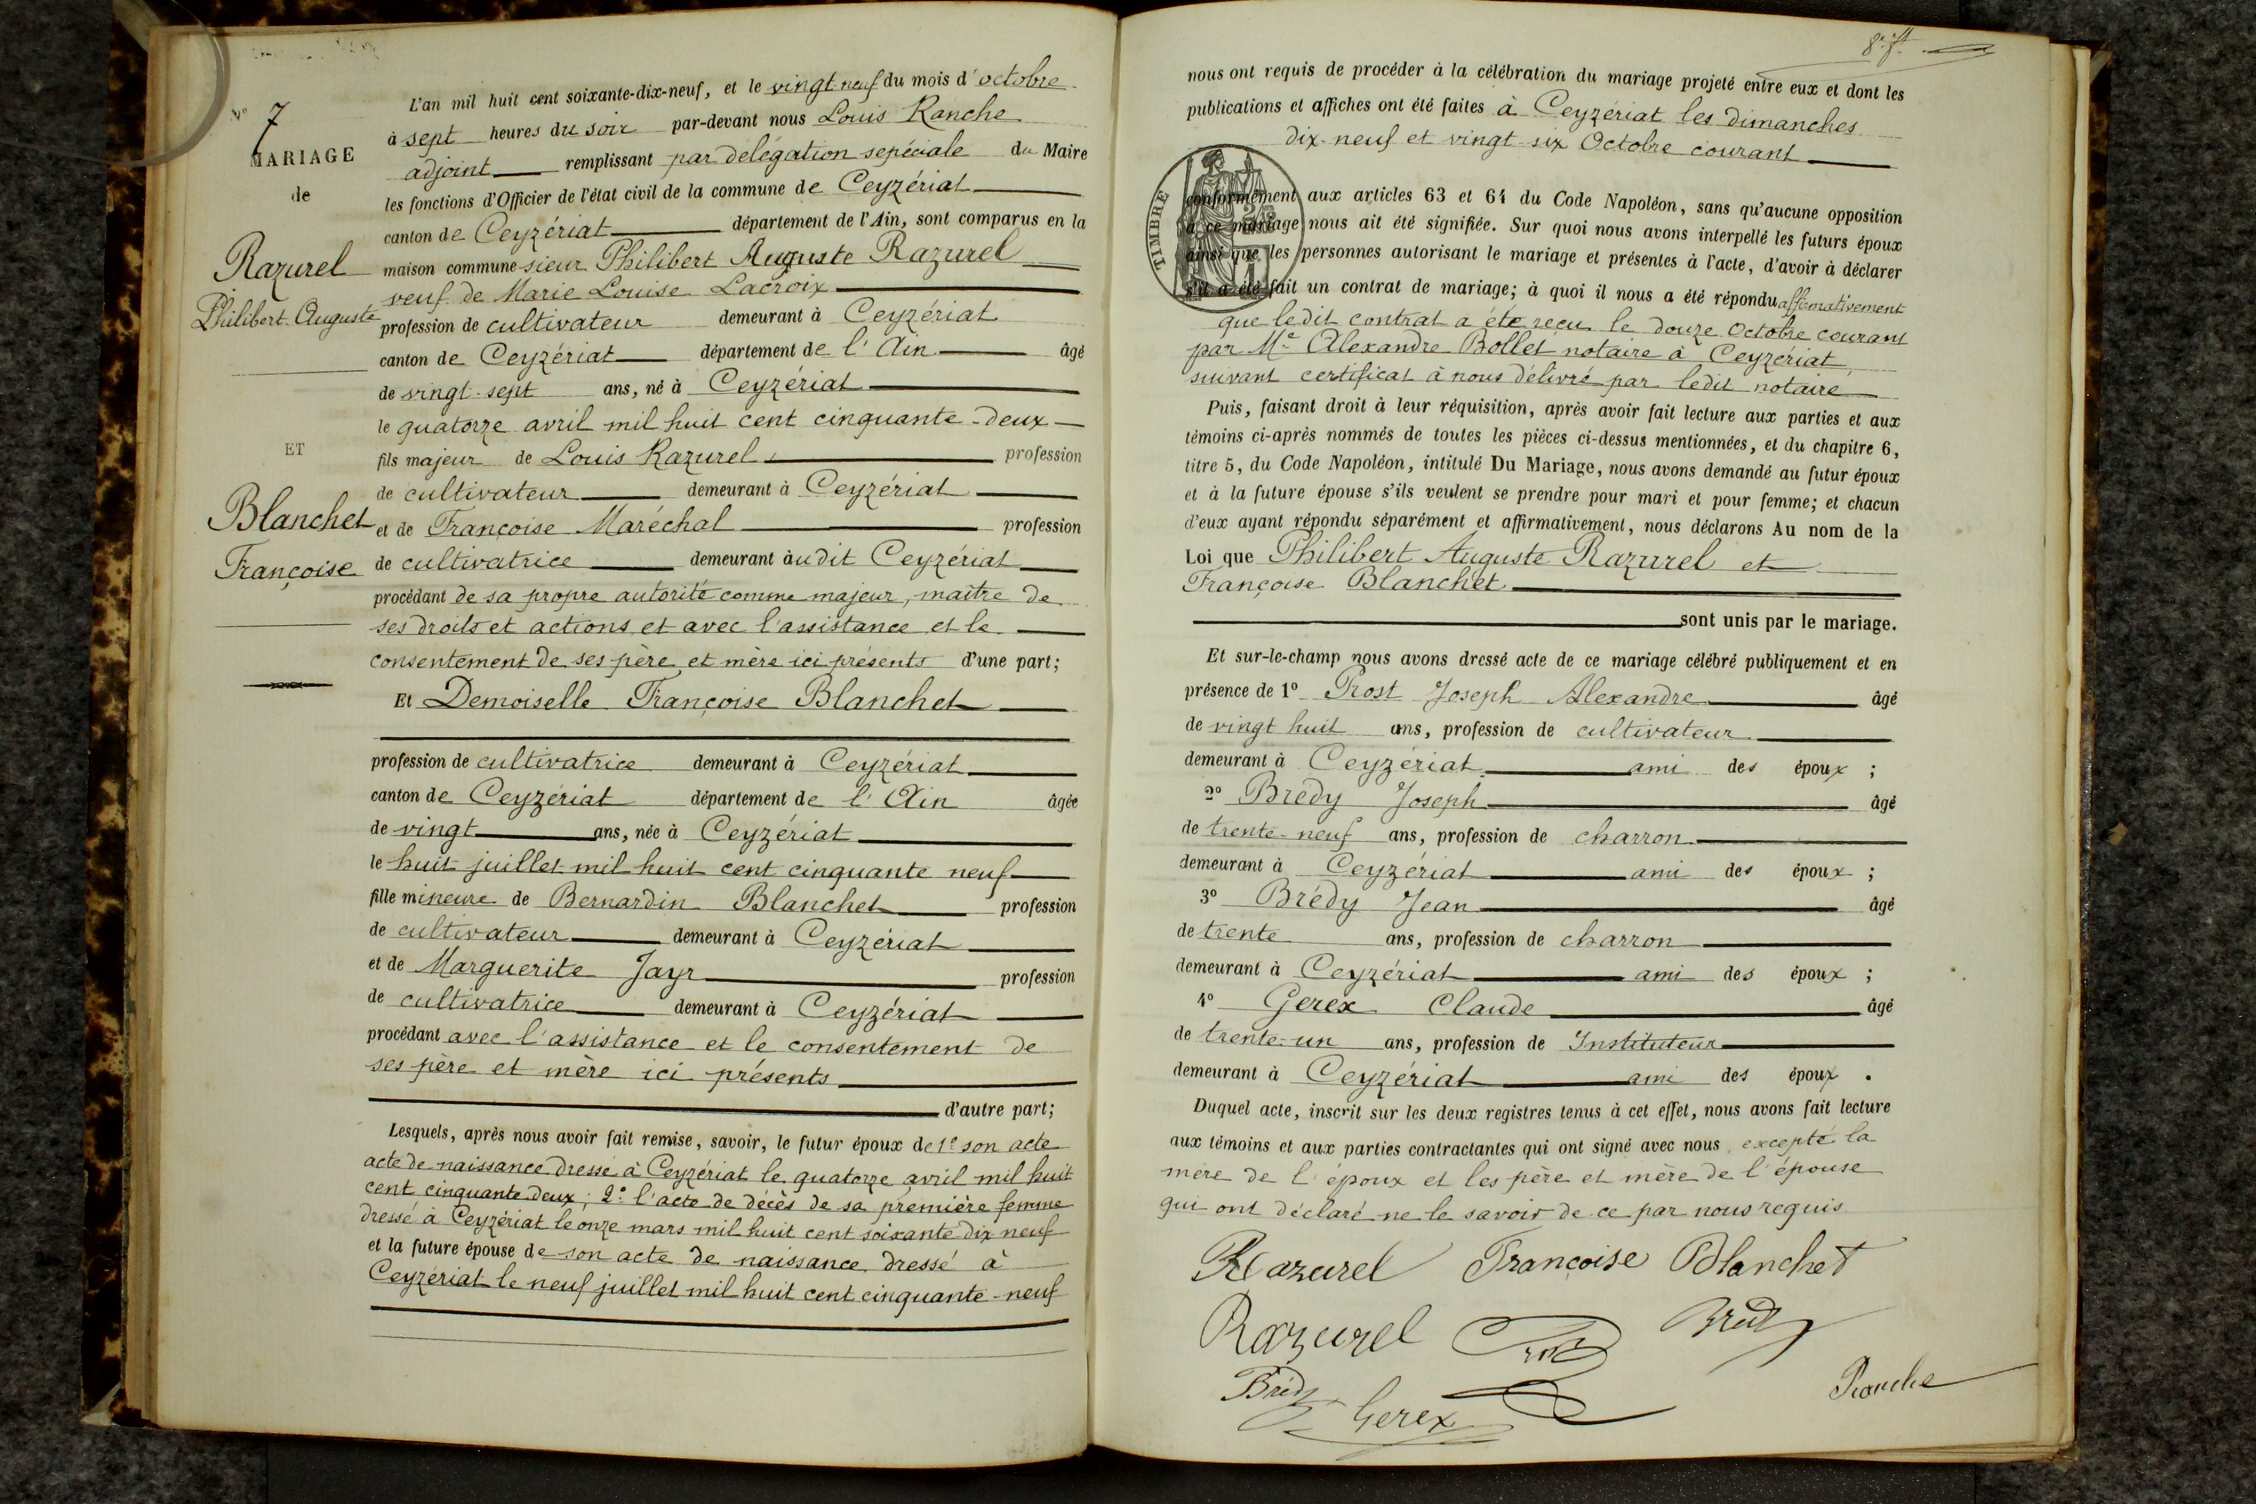 N° 7
MARIAGE
de
Razurel
Philibert Auguste
ET
Blanchet
Françoise
L'an mil huit cent soixante-dix-neuf, et le vingt-neuf du mois d'octobre
à sept heures du soir par-devant nous Louis Ranche
adjoint remplissant par délégation sepéciale du Maire
les fonctions d'Officier de l'état civil de la commune de Ceyzériat
canton de Ceyzériat département de l'Ain, sont comparus en la
maison commune sieur Philibert Auguste Razurel
veuf de Marie Louise Lacroix
profession de cultivateur demeurant à Ceyzériat
canton de Ceyzériat département de l'Ain âgé
de vingt-sept ans, né à Ceyzériat
le quatorze avril mil huit cent cinquante-deux
fils majeur de Louis Razurel profession
de cultivateur demeurant à Ceyzériat
et de Françoise Maréchal profession
de cultivatrice demeurant àudit Ceyzériat
procédant de sa propre autorité comme majeur, maître de
ses droits et actions et avec l'assistance et le
consentement de ses père et mère ici présents d'une part;
Et Demoiselle Françoise Blanchet
profession de cultivatrice demeurant à Ceyzériat
canton de Ceyzériat département de l'Ain âgée
de vingt ans, née à Ceyzériat
le huit juillet mil huit cent cinquante neuf
fille mineure de Bernardin Blanchet profession
de cultivateur demeurant à Ceyzériat
et de Marguerite Jayr profession
de cultivatrice demeurant à Ceyzériat
procédant avec l'assistance et le consentement de
ses père et mère ici présents
d'autre part;
Lesquels, après nous avoir fait remise, savoir, le futur époux de 1° son acte
acte de naissance dressé à Ceyzériat le quatorze avril mil huit
cent cinquante deux; 2° l'acte de décès de sa première femme
dressé à Ceyzériat le onze mars mil huit cent soixante dix neuf
et la future épouse de son acte de naissance dressé à
Ceyzériat le neuf juillet mil huit cent cinquante-neuf
nous ont requis de procéder à la célébration du mariage projeté entre eux et dont les
publications et affiches ont été faites à Ceyzériat les dimanches
dix-neuf et vingt-six Octobre courant
TIMBRE
conformément aux articles 63 et 64 du Code Napoléon, sans qu'aucune opposition
à ce mariage nous ait été signifiée. Sur quoi nous avons interpellé les futurs époux
ainsi que les personnes autorisant le mariage et présentes à l'acte, d'avoir à déclarer
s'il a été fait un contrat de mariage; à quoi il nous a été répondu affirmativement
que ledit contrat a été reçu le douze Octobre courant
par Me Alexandre Bollet notaire à Ceyzériat
suivant certificat à nous délivré par ledit notaire
Puis, faisant droit à leur réquisition, après avoir fait lecture aux parties et aux
témoins ci-après nommés de toutes les pièces ci-dessus mentionnées, et du chapitre 6,
titre 5, du Code Napoléon, intitulé Du Mariage, nous avons demandé au futur époux
et à la future épouse s'ils veulent se prendre pour mari et pour femme; et chacun
d'eux ayant répondu séparément et affirmativement, nous déclarons Au nom de la
Loi que Philibert Auguste Razurel et
Françoise Blanchet
sont unis par le mariage.
Et sur-le-champ nous avons dressé acte de ce mariage célébré publiquement et en
présence de 1° Prost Joseph Alexandre âgé
de vingt huit ans, profession de cultivateur
demeurant à Ceyzériat ami des époux ;
2° Brédy Joseph âgé
de trente-neuf ans, profession de charron
demeurant à Ceyzériat ami des époux ;
3° Brédy Jean âgé
de trente ans, profession de charron
demeurant à Ceyzériat ami des époux ;
4° Gerex Claude âgé
de trente-un ans, profession de Instituteur
demeurant à Ceyzériat ami des époux .
Duquel acte, inscrit sur les deux registres tenus à cet effet, nous avons fait lecture
aux témoins et aux parties contractantes qui ont signé avec nous, excepté la
mère de l'époux et les père et mère de l'épouse
qui ont déclaré ne le savoir de ce par nous requis
Razurel Françoise Blanchet
Razurel Prost Brédy
Brédy Gerex Ranche